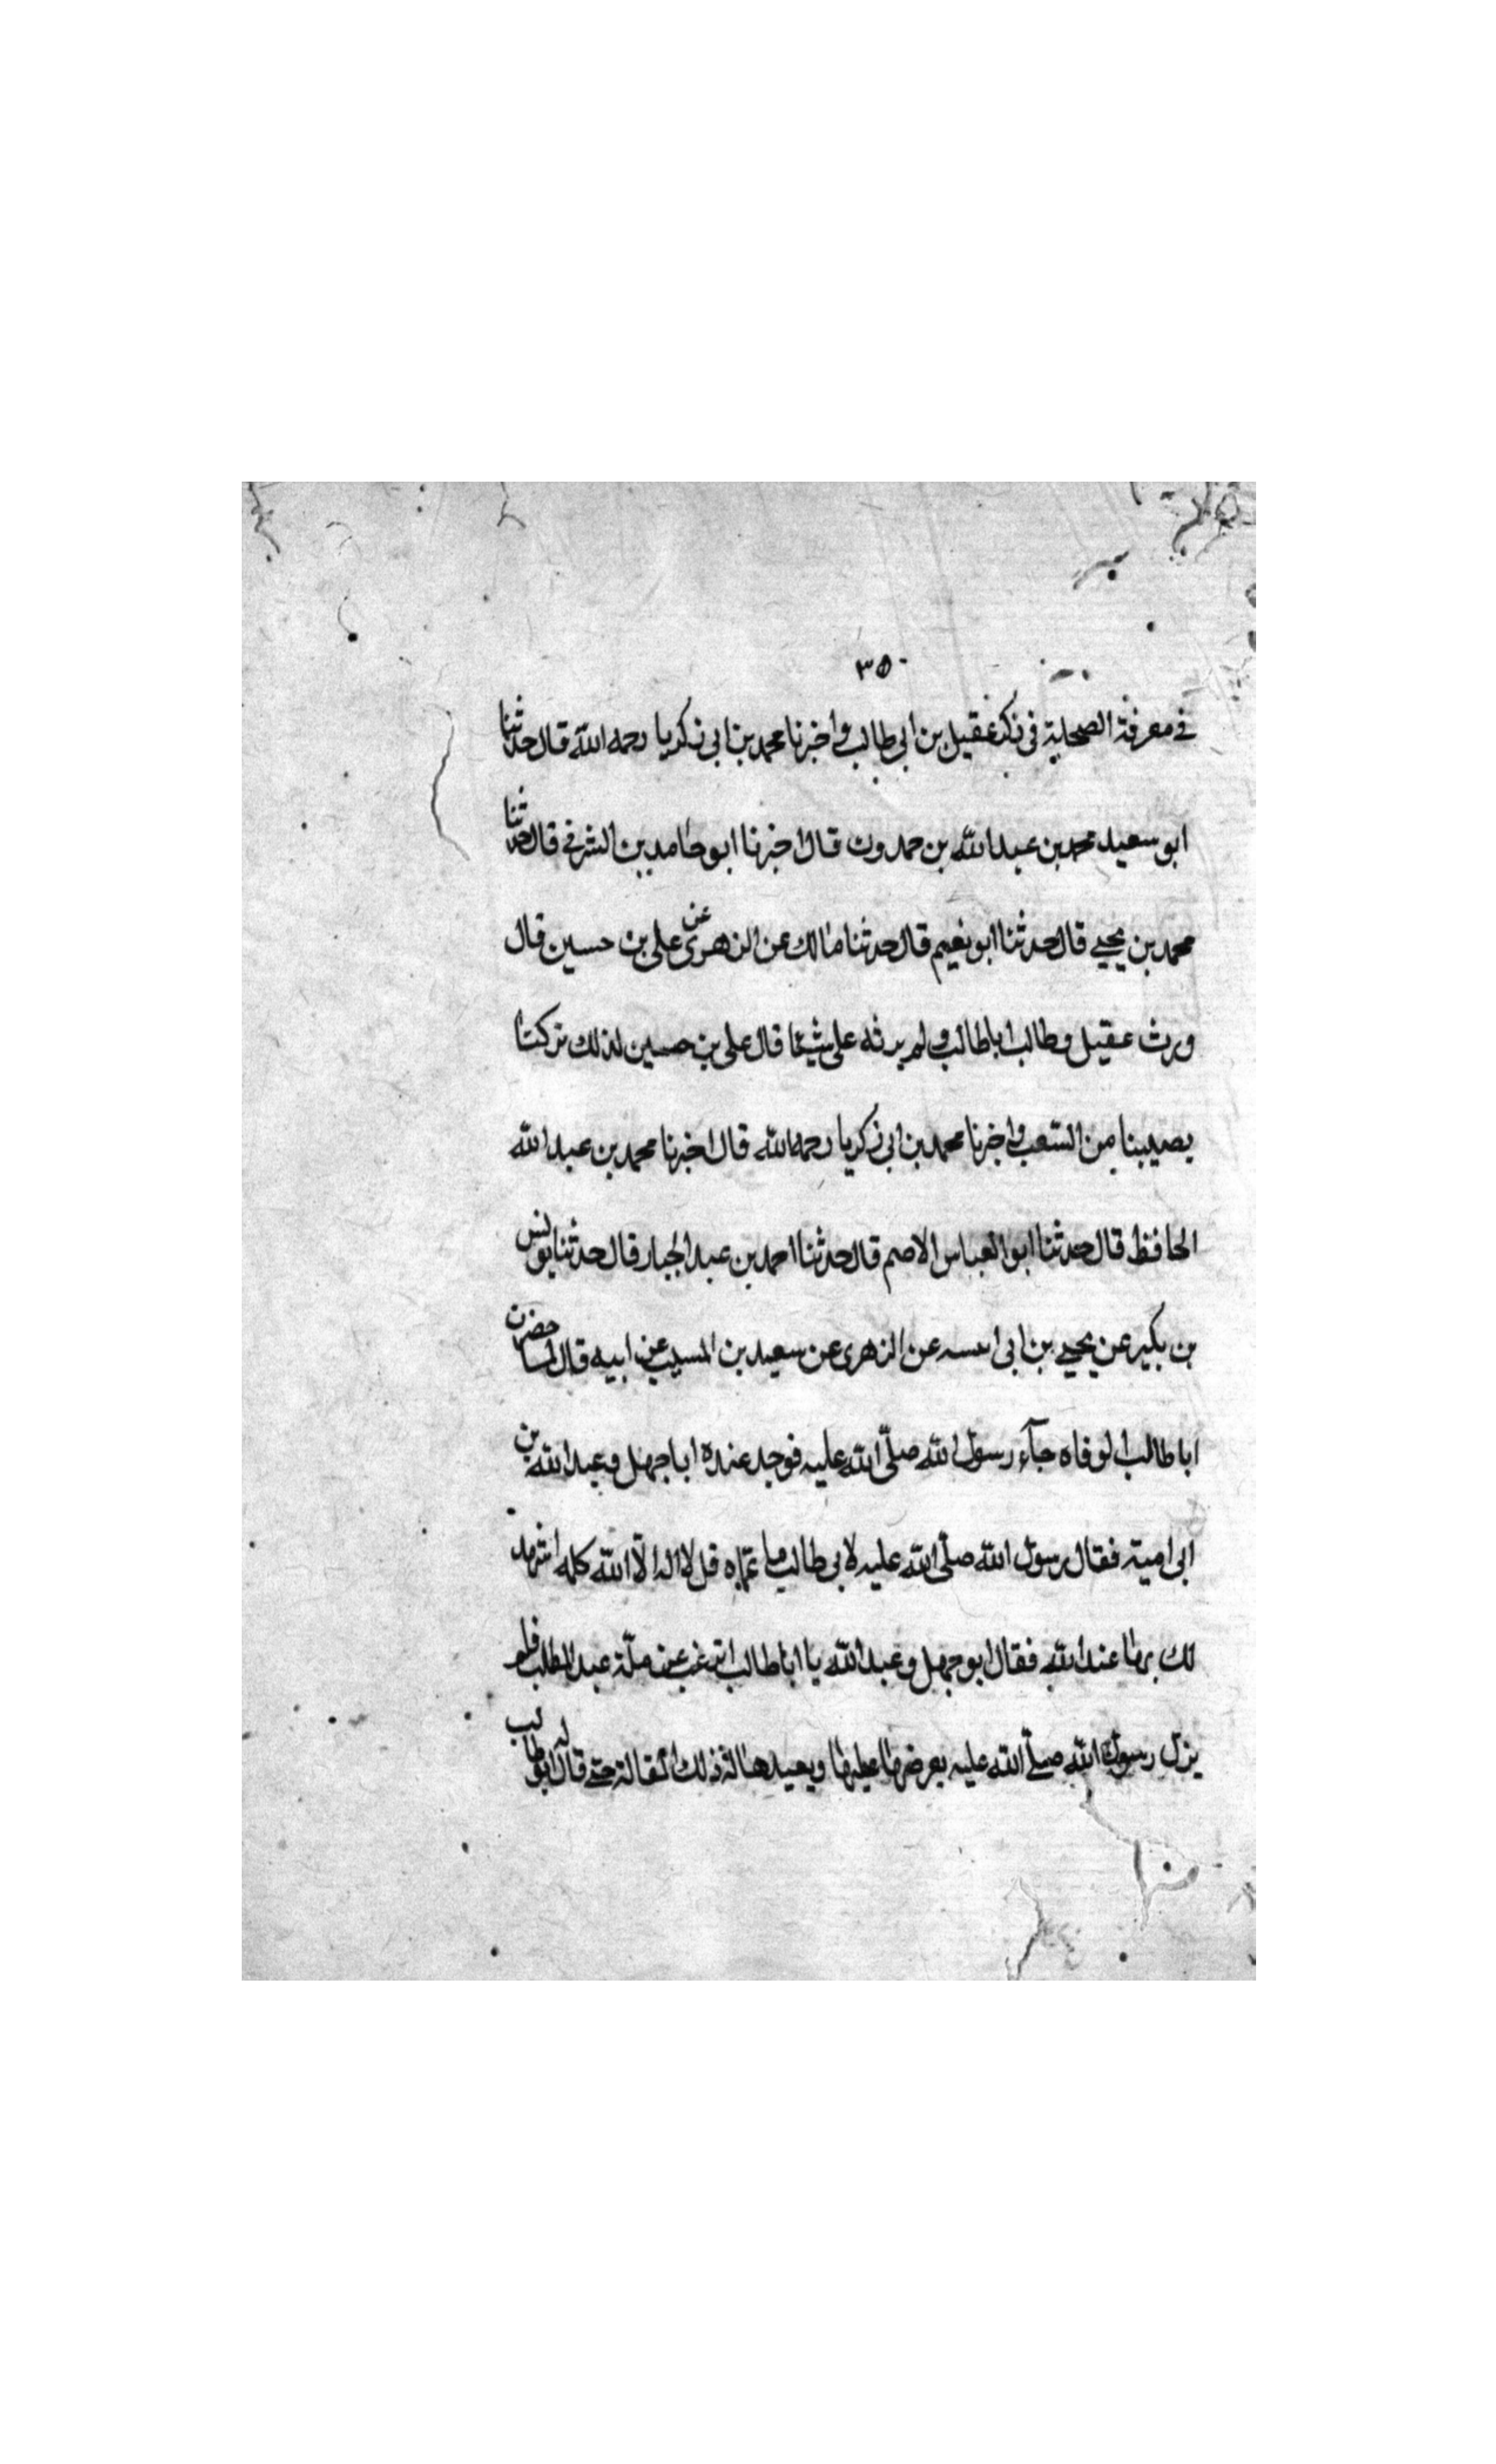 ٣٥٠
في معرفة الصحابة في ذكر عقيل بن ابي طالب واخبرنا محمد بن ابي زكريا رحمه الله قال حدثنا
ابو سعيد محمد بن عبد الله بن حمدون قال اخبرنا ابو حامد بن الشرفي قال حدثنا
محمد بن يحيى قال حدثنا ابو نعيم قال حدثنا مالك عن الزهرى عن على بن حسين قال
ورث عقيل وطالب ابا طالب ولم يرثه على شيئا قال على بن حسين لذلك تركنا
يصيبنا من الشعب واخبرنا محمد بن ابي زكريا رحمه الله قال اخبرنا محمد بن عبد الله
الحافظ قال حدثنا ابو العباس الاصم قال حدثنا احمد بن عبد الجبار قال حدثنا يونس
بن بكير عن يحيى بن ابى انيسه عن الزهرى عن سعيد بن المسيب عن ابيه قال لما حضرت
ابا طالب الوفاه جآء رسول الله صلّى الله عليه فوجد عنده ابا جهل وعبد الله بن
ابى امية فقال رسول الله صلّى الله عليه لابى طالب يا عماه قل لا اله الّا الله كلمه اشهد
لك بها عند الله فقال ابو جهل وعبد الله يا ابا طالب اترغب عن ملّة عبد المطلب فلم
يزل رسول الله صلّى الله عليه يعرضها عليها ويعيد هالة ذلك المقالة حتى قال ابو طالب